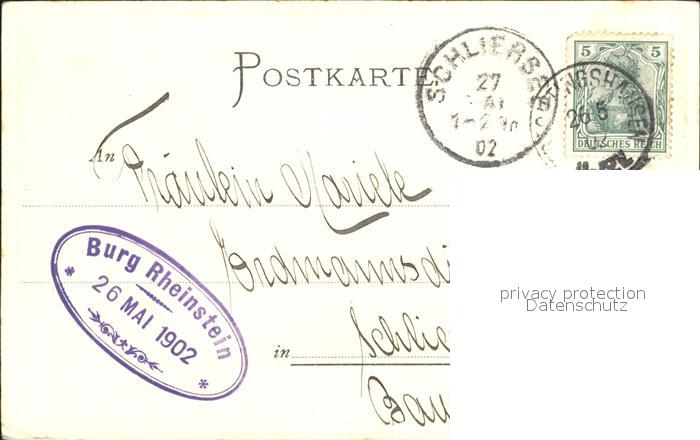 POSTKARTE
SCHLIERSEE
27
MAI
1-2 Nm
02
5 5
DEUTSCHES REICH
26 5
02
An Fräulein Mariele
Erdmannsd
in Schlie
Burg Rheinstein
* 26 MAI 1902 *
privacy protection
Datenschutz